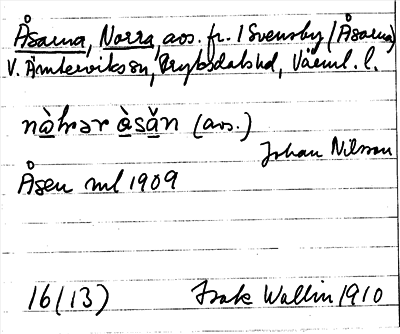 Åsarna, Norra, avs. fr. 1 Svensby (Åsarna)
V. Ämterviks sn, Fryksdals hd, Värml. l.
nòrər àsăn (avs.)
Johan Nilsson
Åsen ml 1909
16 (13) Isak Wallin 1910